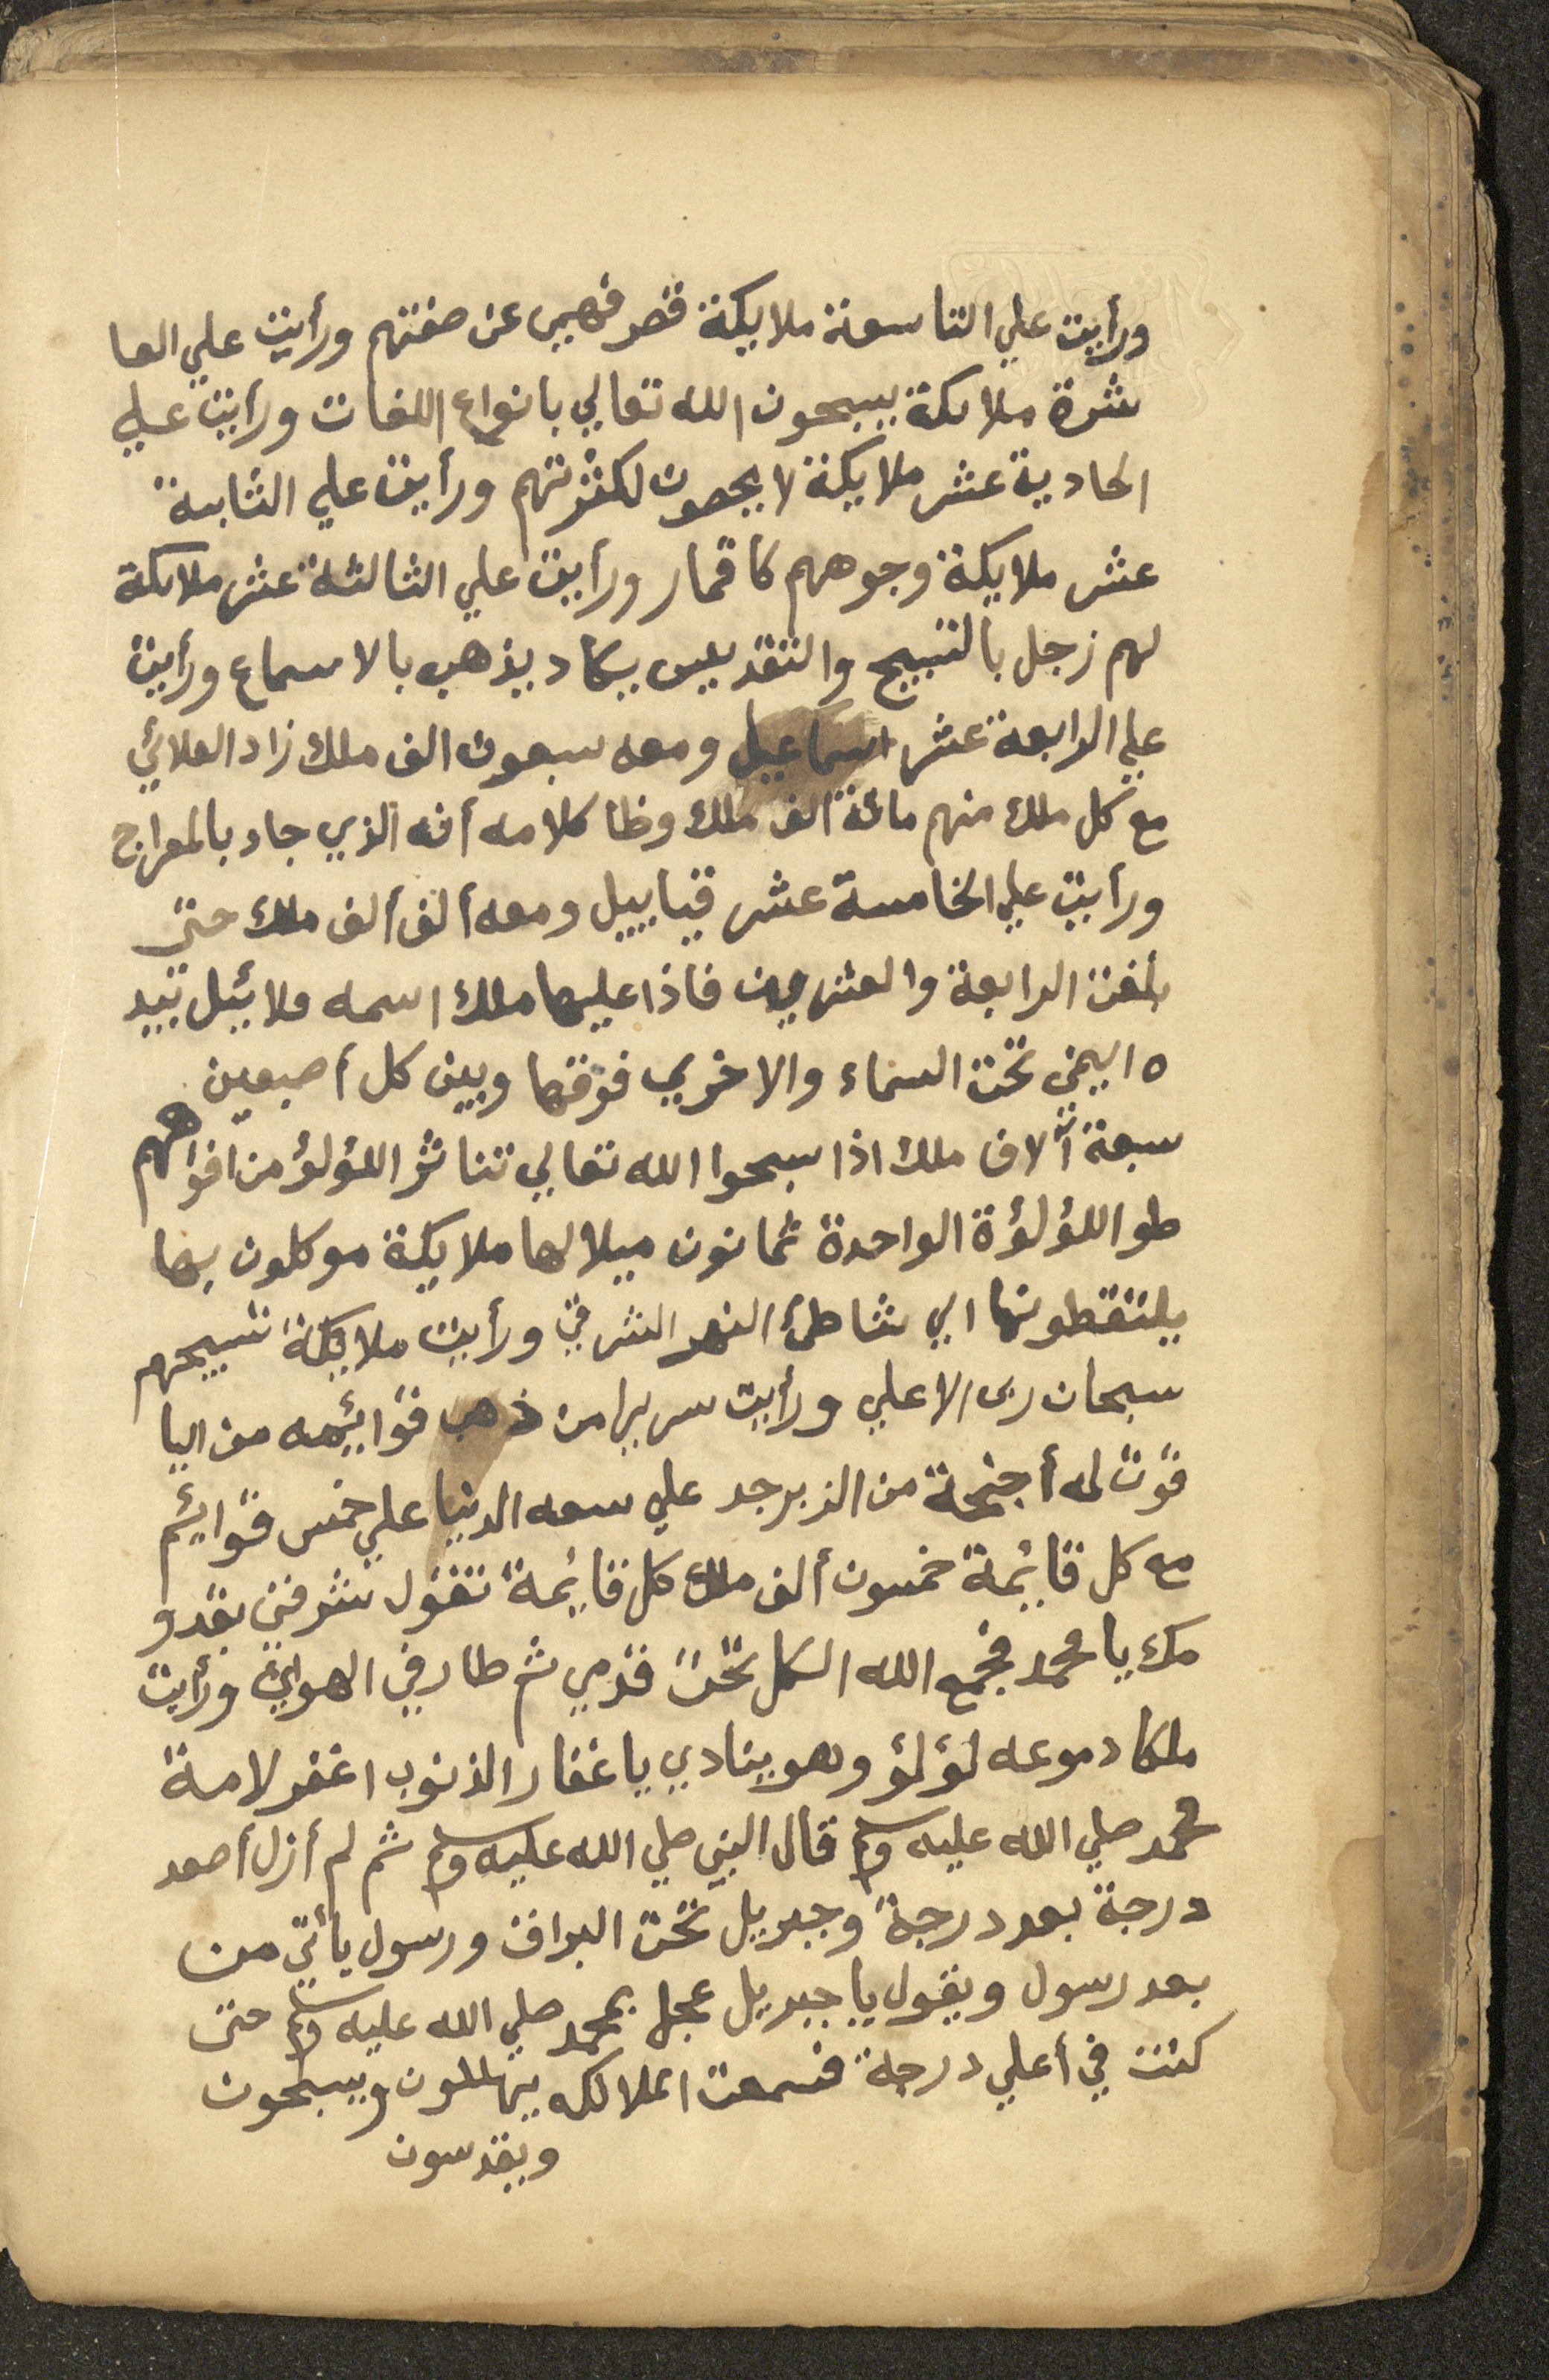 ورأيت علي التاسعة ملايكة قصر فهمي عن صفتهم ورأيت علي العا
شرة ملايكة يسبحون الله تعالي بانواع اللغات ورأيت علي
الحادية عشر ملايكة لا يحصون لكثرتهم ورأيت علي الثانية
عشر ملايكة وجوههم كاقمار ورأيت علي الثالثة عشر ملايكة
لهم زجل بالتسبيح والتقديس يكاد يذهب بالاسماع ورأيت
علي الرابعة عشر اسماعيل ومعه سبعون الف ملك زاد العلائي
مع كل ملك منهم مائة ألف ملك وظا كلامه أنه الذي جاد بالمعراج
ورأيت علي الخامسة عشر قيابييل ومعه ألف ألف ملك حتى
بلغت الرابعة والعشرين فاذا عليها ملك اسمه ملائيل بيد
ه اليمنى تحت السماء والاخري فوقها وبين كل أصبعين
سبعة آلاف ملك اذا سبحوا الله تعالي تناثر اللؤلؤ من افواههم
طو اللؤلؤة الواحدة ثمانون ميلا لها ملايكة موكلون بها
يلتقطونها الي شاطئ النهر الشرقي ورأيت ملايكة تسبيحهم
سبحان ربى الاعلي ورأيت سريرا من ذهب قوائيمه من اليا
قوت له أجنحة من الزبرجد علي سعه الدنيا علي خمس قوائيم
مع كل قائيمة خمسون ألف ملك كل قائيمة تقول شرفني بقدو
مك يا محمد فجمع الله الكل تحت قدمي ثم طار في الهواي ورأيت
ملكا دموعه لؤلؤ وهو ينادي يا غفار الذنوب اغفر لامة
محمد صلي الله عليه وسلم قال النبي صلي الله عليه وسلم ثم لم أزل أصعد
درجة بعد درجة وجبريل تحت البراق ورسول يأتي من
بعد رسول ويقول يا جبريل عجل بمحمد صلي الله عليه وسلم حتى
كنت في أعلي درجة فسمعت الملائكه يهللون ويسبحون
ويقدسون